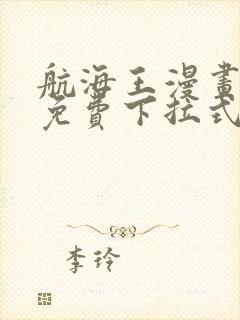 航海王漫畫
免費下拉式
李玲